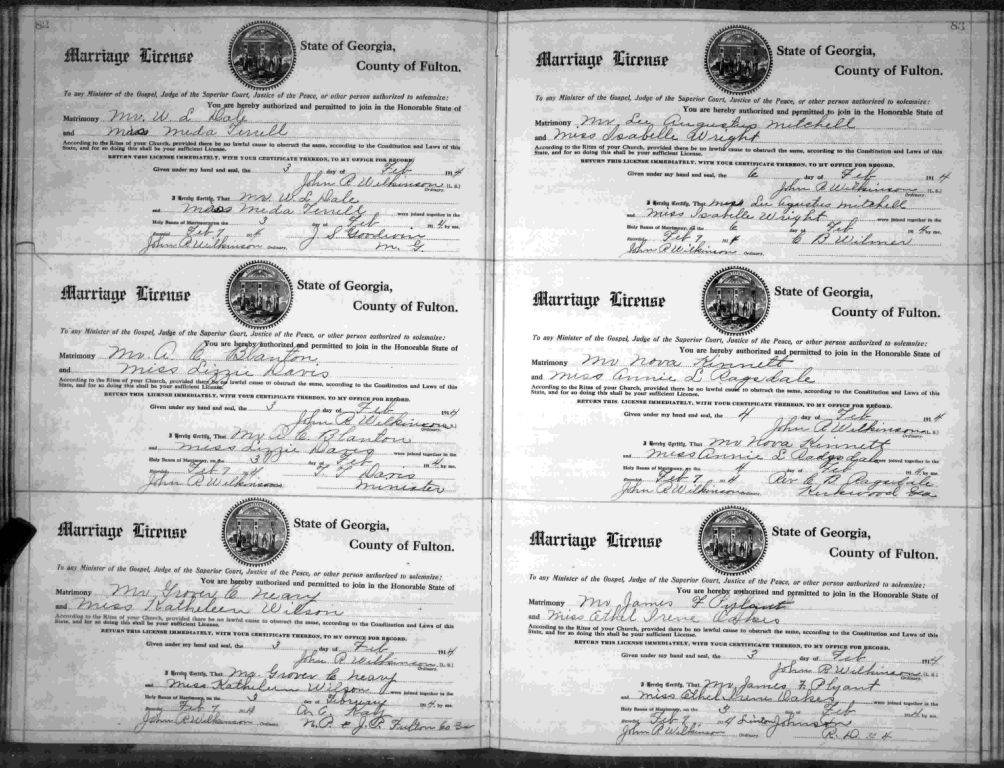 82
Marriage License
State of Georgia,
County of Fulton.
To any Minister of the Gospel, Judge of the Superior Court, Justice of the Peace, or other person authorized to solemnize:
You are hereby authorized and permitted to join in the Honorable State of
Matrimony Mr. W. L. Dale
and Miss Meda Terrell
According to the Rites of your Church, provided there be no lawful cause to obstruct the same, according to the Constitution and Laws of this
State, and for so doing this shall be your sufficient License.
RETURN THIS LICENSE IMMEDIATELY, WITH YOUR CERTIFICATE THEREON, TO MY OFFICE FOR RECORD.
Given under my hand and seal, the 3 day of Feb 1914
John R Wilkinson (L. S.)
Ordinary.
I Hereby Certify, That Mr W L Dale
and Miss Meda Terrell were joined together in the
Holy Banns of Matrimony, on the 3 day of Feb 1914 by me.
Recorded Feb 7 1914 J S Goodwin
John R Wilkinson Ordinary. M. G.
Marriage License
State of Georgia,
County of Fulton.
To any Minister of the Gospel, Judge of the Superior Court, Justice of the Peace, or other person authorized to solemnize:
You are hereby authorized and permitted to join in the Honorable State of
Matrimony Mr. A. C. Blanton
and Miss Lizzie Davis
According to the Rites of your Church, provided there be no lawful cause to obstruct the same, according to the Constitution and Laws of this
State, and for so doing this shall be your sufficient License.
RETURN THIS LICENSE IMMEDIATELY, WITH YOUR CERTIFICATE THEREON, TO MY OFFICE FOR RECORD.
Given under my hand and seal, the 3 day of Feb 1914
John R Wilkinson
Ordinary.
I Hereby Certify, That Mr A C Blanton
and Miss Lizzie Davis were joined together in the
Holy Banns of Matrimony, on the 3 day of Feb 1914 by me.
Recorded Feb 7 1914 Davis
John R Wilkinson Minister
Marriage License
State of Georgia,
County of Fulton.
To any Minister of the Gospel, Judge of the Superior Court, Justice of the Peace, or other person authorized to solemnize:
You are hereby authorized and permitted to join in the Honorable State of
Matrimony Mr. Grover C Neavy
and Miss Katheleen Wilson
According to the Rites of your Church, provided there be no lawful cause to obstruct the same, according to the Constitution and Laws of this
State, and for so doing this shall be your sufficient License.
RETURN THIS LICENSE IMMEDIATELY, WITH YOUR CERTIFICATE THEREON, TO MY OFFICE FOR RECORD.
Given under my hand and seal, the 3 day of Feb 1914
John R Wilkinson (L. S.)
Ordinary.
I Hereby Certify, That Mr Grover C Neavy
and Miss Katheleen Wilson were joined together in the
Holy Banns of Matrimony, on the day of February 1914 by me.
Recorded Feb 7 1914
John R Wilkinson Ordinary. N. P. & J. P. Fulton Co Ga
83
Marriage License
State of Georgia,
County of Fulton.
To any Minister of the Gospel, Judge of the Superior Court, Justice of the Peace, or other person authorized to solemnize:
You are hereby authorized and permitted to join in the Honorable State of
Matrimony Mr Lee Augustus Mitchell
and Miss Isabelle Wright
According to the Rites of your Church, provided there be no lawful cause to obstruct the same, according to the Constitution and Laws of this
State, and for so doing this shall be your sufficient License.
RETURN THIS LICENSE IMMEDIATELY, WITH YOUR CERTIFICATE THEREON, TO MY OFFICE FOR RECORD.
Given under my hand and seal, the 6 day of Feb 1914
John R Wilkinson (L. S.)
Ordinary.
I Hereby Certify, That Lee Agustus Mitchell
and Miss Isabelle Wright were joined together in the
Holy Banns of Matrimony, on the 6 day of Feb 1914 by me.
Recorded Feb 7 1914 C B Wilmer
John R Wilkinson Ordinary.
Marriage License
State of Georgia,
County of Fulton.
To any Minister of the Gospel, Judge of the Superior Court, Justice of the Peace, or other person authorized to solemnize:
You are hereby authorized and permitted to join in the Honorable State of
Matrimony Mr Nova Kinnett
and Miss Annie L Ragsdale
According to the Rites of your Church, provided there be no lawful cause to obstruct the same, according to the Constitution and Laws of this
State, and for so doing this shall be your sufficient License.
RETURN THIS LICENSE IMMEDIATELY, WITH YOUR CERTIFICATE THEREON, TO MY OFFICE FOR RECORD.
Given under my hand and seal, the 4 day of Feb 1914
John R Wilkinson (L. S.)
Ordinary.
I Hereby Certify, That Mr Nova Kinnett
and Miss Annie L Radgsdale were joined together in the
Holy Banns of Matrimony, on the 4 day of Feb 1914 by me.
Recorded Feb 7 1914 Rev C B Ragsdale
John R Wilkinson Kirkwood Ga
Marriage License
State of Georgia,
County of Fulton.
To any Minister of the Gospel, Judge of the Superior Court, Justice of the Peace, or other person authorized to solemnize:
You are hereby authorized and permitted to join in the Honorable State of
Matrimony Mr James F Pylant
and Miss Ethel Irene Oakes
According to the Rites of your Church, provided there be no lawful cause to obstruct the same, according to the Constitution and Laws of this
State, and for so doing this shall be your sufficient License.
RETURN THIS LICENSE IMMEDIATELY, WITH YOUR CERTIFICATE THEREON, TO MY OFFICE FOR RECORD.
Given under my hand and seal, the 3 day of Feb 1914
John R Wilkinson (L. S.)
Ordinary.
I Hereby Certify, That Mr James F Plyant
and Miss Ethel Irene Oakes were joined together in the
Holy Banns of Matrimony, on the 3 day of Feb 1914 by me.
Recorded Feb 7 1914 Linton Johnson
John R Wilkinson Ordinary.